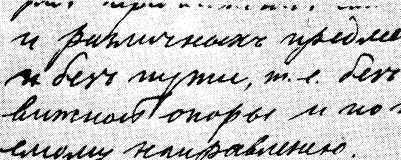 и различныхъ предме
и безъ пути, т.е. безъ
вижной опоры и по
емому направленію.